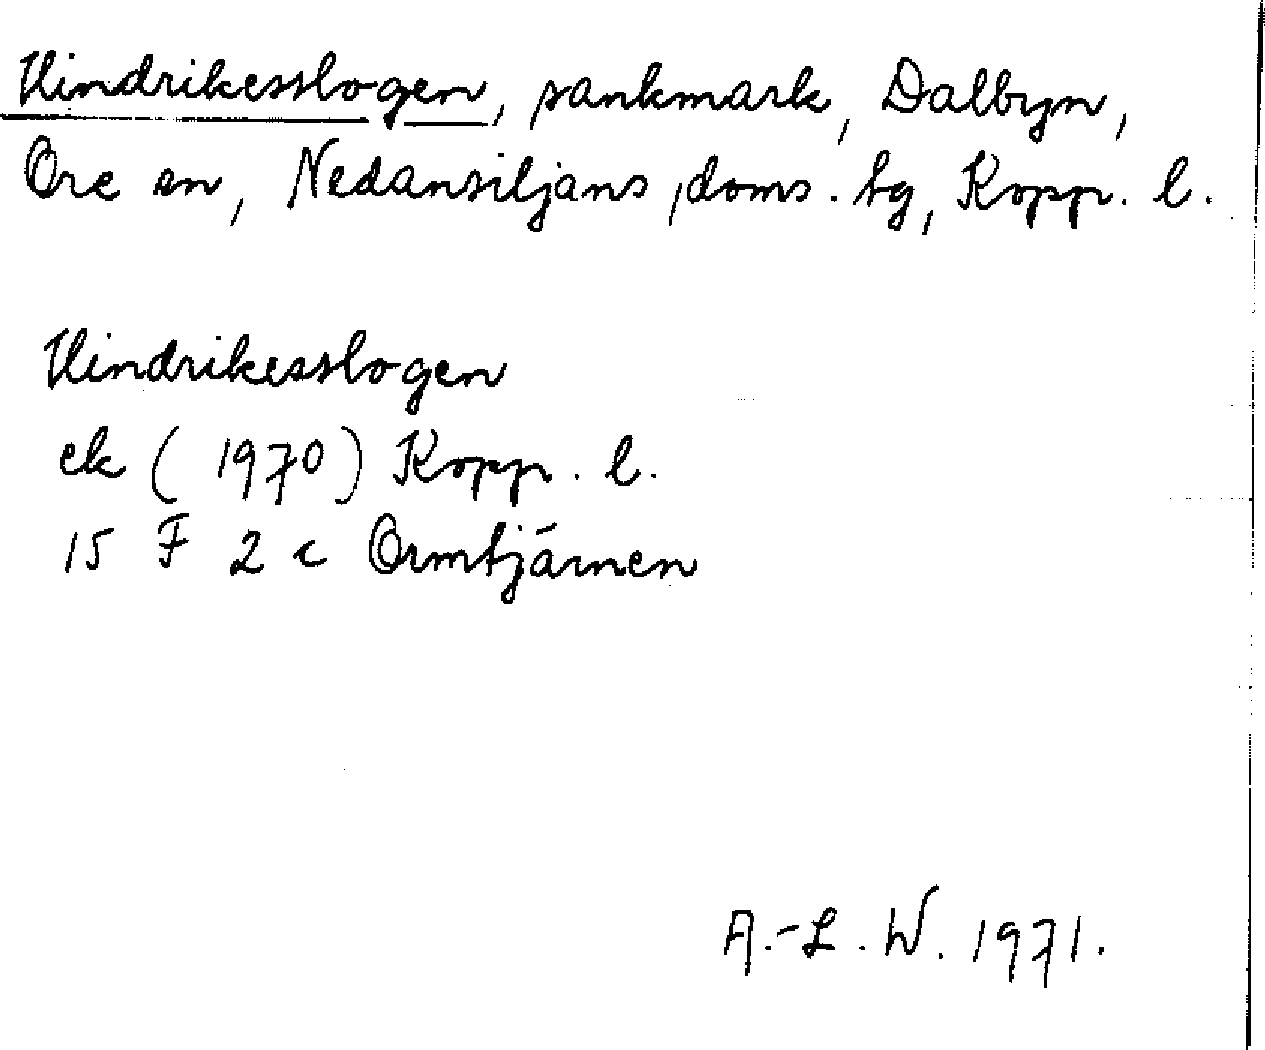 Hindrikesslogen, sankmark, Dalbyn,
Ore sn, Nedansiljans doms. tg, Kopp. l.
Hindrikesslogen
ek (1970) Kopp. l.
15 F 2 c Ormtjärnen
A.-L. W. 1971.